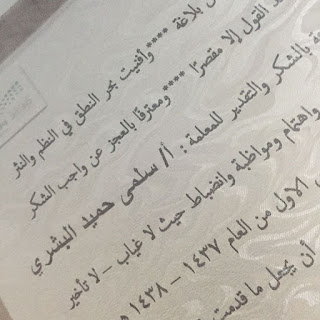 بلاغة **** وأفنيت بحر النطق في النظم والنثر
القول إلا مقصرًا **** ومعترفا بالعجز عن واجب الشكر
بالشكر والتقدير للمعلمة : أ/ سلمى حميد البشري
واهتمام ومواظبة وانضباط حيث لا غياب – لا تأخير
الاول من العام ١٤٣٧ – ١٤٣٨ هـ
أن يجعل ما قدمت